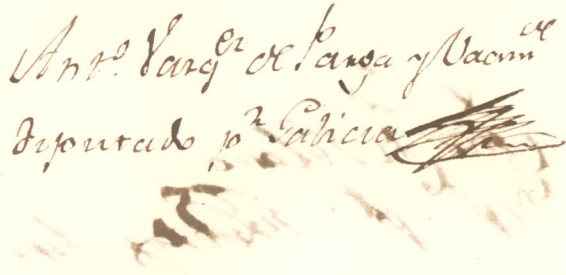 Antº. Vazqez de Parga y Vaam.de
Diputado pr. Galicia